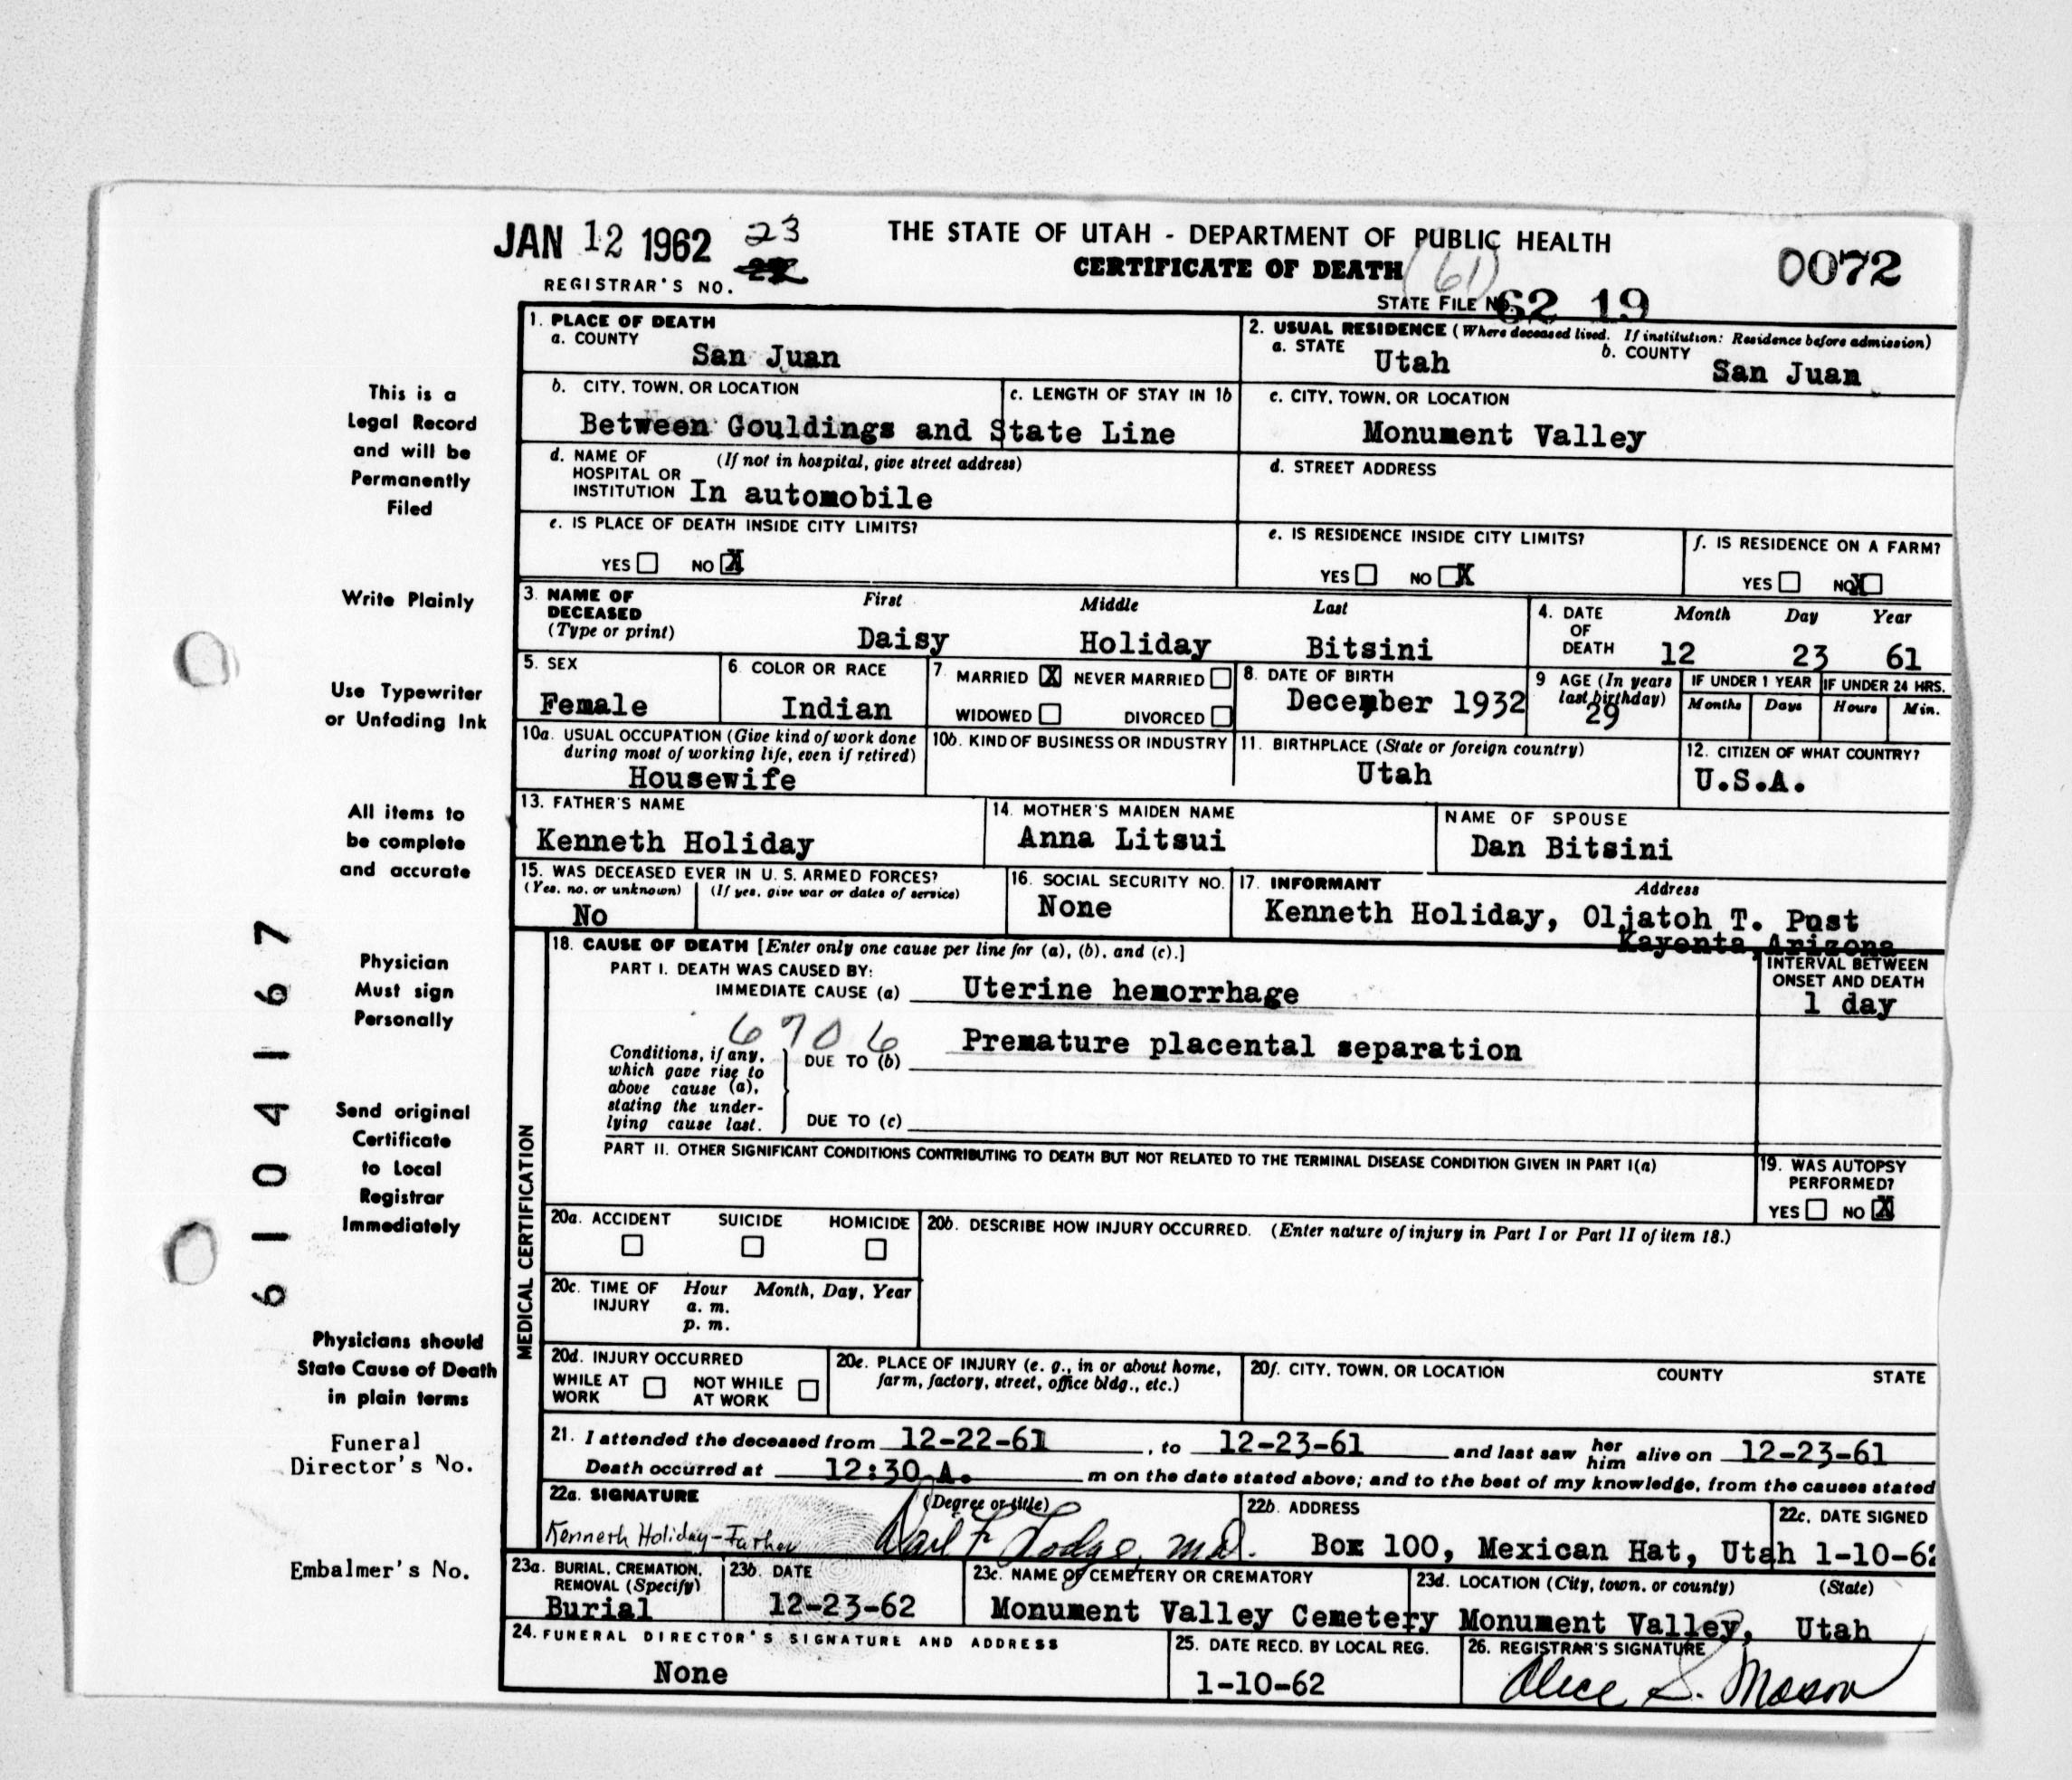 JAN 12 1962 23 THE STATE OF UTAH - DEPARTMENT OF PUBLIC HEALTH 0072
REGISTRAR'S NO. CERTIFICATE OF DEATH (61)
STATE FILE N 62 19
This is a
Legal Record
and will be
Permanently
Filed
Write Plainly
Use Typewriter
or Unfading Ink
All items to
be complete
and accurate
Physician
Must sign
Personally
Send original
Certificate
to Local
Registrar
Immediately
Physicians should
State Cause of Death
in plain terms
Funeral
Director's No.
Embalmer's No.
6104167
1. PLACE OF DEATH
a. COUNTY
San Juan
2. USUAL RESIDENCE (Where deceased lived. If institution: Residence before admission)
a. STATE Utah b. COUNTY San Juan
b. CITY, TOWN, OR LOCATION c. LENGTH OF STAY IN 1b
Between Gouldings and State Line
c. CITY, TOWN, OR LOCATION
Monument Valley
d. NAME OF (If not in hospital, give street address)
HOSPITAL OR
INSTITUTION In automobile
d. STREET ADDRESS
e. IS PLACE OF DEATH INSIDE CITY LIMITS?
YES NO X
e. IS RESIDENCE INSIDE CITY LIMITS?
YES NO X
f. IS RESIDENCE ON A FARM?
YES NO X
3. NAME OF First Middle Last
DECEASED
(Type or print) Daisy Holiday Bitsini
4. DATE Month Day Year
OF
DEATH 12 23 61
5. SEX
Female
6. COLOR OR RACE
Indian
7. MARRIED X NEVER MARRIED
WIDOWED DIVORCED
8. DATE OF BIRTH
December 1932
9 AGE (In years
last birthday)
29
IF UNDER 1 YEAR IF UNDER 24 HRS.
Months Days Hours Min.
10a. USUAL OCCUPATION (Give kind of work done
during most of working life, even if retired)
Housewife
10b. KIND OF BUSINESS OR INDUSTRY
11. BIRTHPLACE (State or foreign country)
Utah
12. CITIZEN OF WHAT COUNTRY?
U.S.A.
13. FATHER'S NAME
Kenneth Holiday
14. MOTHER'S MAIDEN NAME
Anna Litsui
NAME OF SPOUSE
Dan Bitsini
15. WAS DECEASED EVER IN U. S. ARMED FORCES?
(Yes, no, or unknown) (If yes, give war or dates of service)
No
16. SOCIAL SECURITY NO.
None
17. INFORMANT Address
Kenneth Holiday, Oljatoh T. Post
Kayenta, Arizona
MEDICAL CERTIFICATION
18. CAUSE OF DEATH [Enter only one cause per line for (a), (b), and (c).]
PART I. DEATH WAS CAUSED BY:
IMMEDIATE CAUSE (a) Uterine hemorrhage
INTERVAL BETWEEN
ONSET AND DEATH
1 day
6706
Conditions, if any,
which gave rise to
above cause (a),
stating the under-
lying cause last.
DUE TO (b) Premature placental separation
DUE TO (c)
PART II. OTHER SIGNIFICANT CONDITIONS CONTRIBUTING TO DEATH BUT NOT RELATED TO THE TERMINAL DISEASE CONDITION GIVEN IN PART I(a)
19. WAS AUTOPSY
PERFORMED?
YES NO X
20a. ACCIDENT SUICIDE HOMICIDE
20b. DESCRIBE HOW INJURY OCCURRED. (Enter nature of injury in Part I or Part II of item 18.)
20c. TIME OF Hour Month, Day, Year
INJURY a. m.
p. m.
20d. INJURY OCCURRED
WHILE AT NOT WHILE
WORK AT WORK
20e. PLACE OF INJURY (e. g., in or about home,
farm, factory, street, office bldg., etc.)
20f. CITY, TOWN, OR LOCATION COUNTY STATE
21. I attended the deceased from 12-22-61, to 12-23-61 and last saw her him alive on 12-23-61
Death occurred at 12:30 A. m on the date stated above; and to the best of my knowledge, from the causes stated
22a. SIGNATURE (Degree or title)
Kenneth Holiday-Father Karl F Lodge, M.D.
22b. ADDRESS
Box 100, Mexican Hat, Utah
22c. DATE SIGNED
1-10-62
23a. BURIAL, CREMATION,
REMOVAL (Specify)
Burial
23b. DATE
12-23-62
23c. NAME OF CEMETERY OR CREMATORY
Monument Valley Cemetery
23d. LOCATION (City, town, or county) (State)
Monument Valley, Utah
24. FUNERAL DIRECTOR'S SIGNATURE AND ADDRESS
None
25. DATE RECD. BY LOCAL REG.
1-10-62
26. REGISTRAR'S SIGNATURE
Alice S. Mason